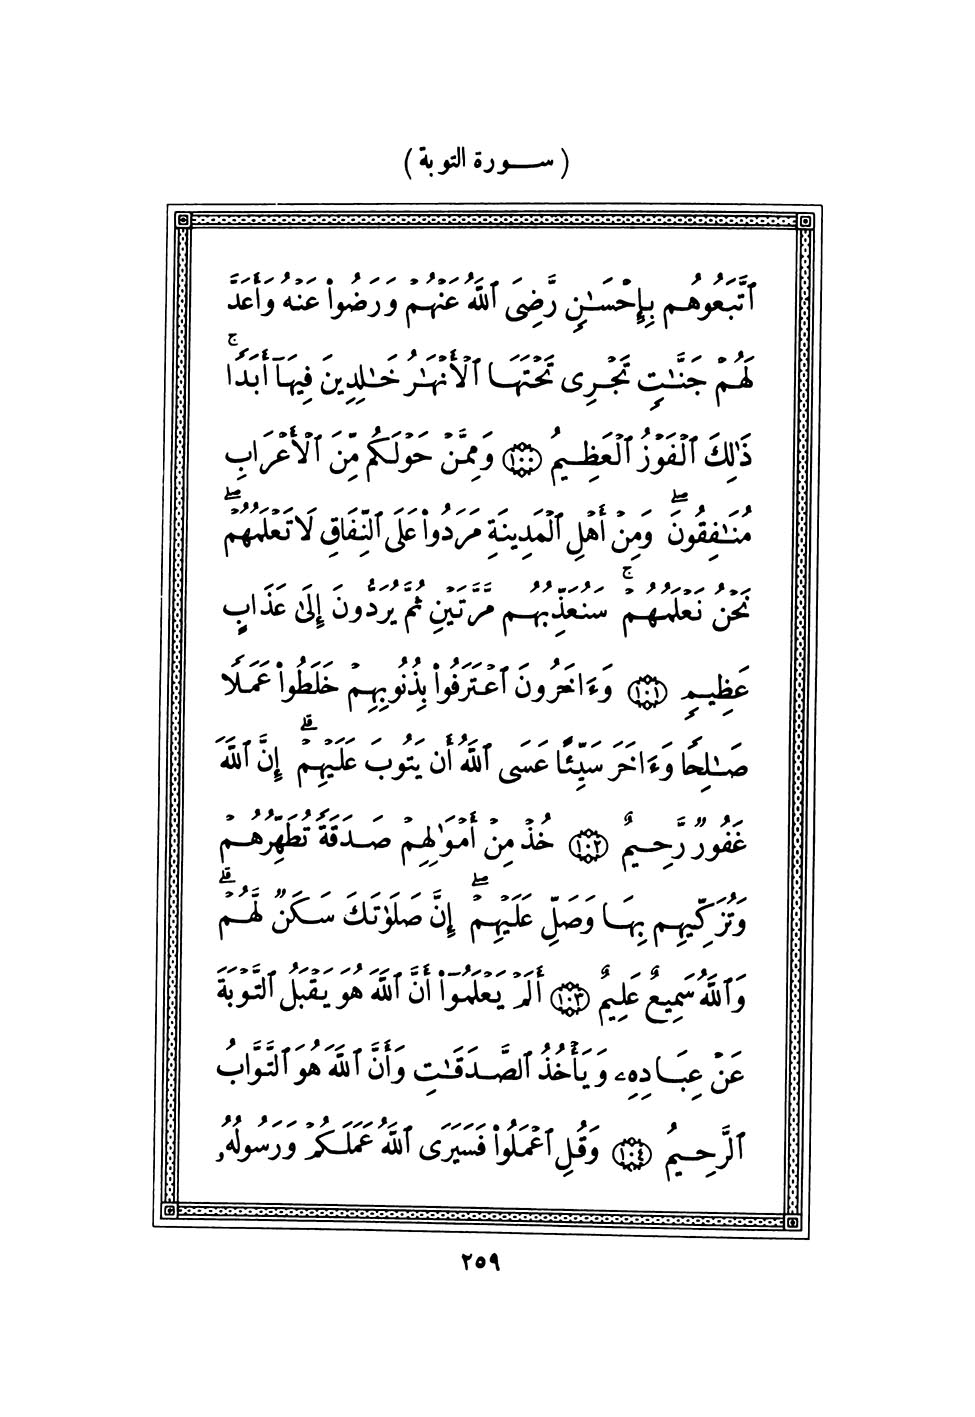 ( ســـورة التوبة )
ٱتَّبَعُوهُم بِإِحْسَـٰنٍ رَّضِىَ ٱللَّهُ عَنْهُمْ وَرَضُوا۟ عَنْهُ وَأَعَدَّ
لَهُمْ جَنَّـٰتٍ تَجْرِى تَحْتَهَا ٱلْأَنْهَـٰرُ خَـٰلِدِينَ فِيهَآ أَبَدًا ۚ
ذَٰلِكَ ٱلْفَوْزُ ٱلْعَظِيمُ ﴿١٠٠﴾ وَمِمَّنْ حَوْلَكُم مِّنَ ٱلْأَعْرَابِ
مُنَـٰفِقُونَ ۖ وَمِنْ أَهْلِ ٱلْمَدِينَةِ مَرَدُوا۟ عَلَى ٱلنِّفَاقِ لَا تَعْلَمُهُمْ ۖ
نَحْنُ نَعْلَمُهُمْ ۚ سَنُعَذِّبُهُم مَّرَّتَيْنِ ثُمَّ يُرَدُّونَ إِلَىٰ عَذَابٍ
عَظِيمٍ ﴿١٠١﴾ وَءَاخَرُونَ ٱعْتَرَفُوا۟ بِذُنُوبِهِمْ خَلَطُوا۟ عَمَلًا
صَـٰلِحًا وَءَاخَرَ سَيِّئًا عَسَى ٱللَّهُ أَن يَتُوبَ عَلَيْهِمْ ۚۗ إِنَّ ٱللَّهَ
غَفُورٌ رَّحِيمٌ ﴿١٠٢﴾ خُذْ مِنْ أَمْوَٰلِهِمْ صَدَقَةً تُطَهِّرُهُمْ
وَتُزَكِّيهِم بِهَا وَصَلِّ عَلَيْهِمْ ۖ إِنَّ صَلَوٰتَكَ سَكَنٌ لَّهُمْ ۗ
وَٱللَّهُ سَمِيعٌ عَلِيمٌ ﴿١٠٣﴾ أَلَمْ يَعْلَمُوٓا۟ أَنَّ ٱللَّهَ هُوَ يَقْبَلُ ٱلتَّوْبَةَ
عَنْ عِبَادِهِۦ وَيَأْخُذُ ٱلصَّدَقَـٰتِ وَأَنَّ ٱللَّهَ هُوَ ٱلتَّوَّابُ
ٱلرَّحِيمُ ﴿١٠٤﴾ وَقُلِ ٱعْمَلُوا۟ فَسَيَرَى ٱللَّهُ عَمَلَكُمْ وَرَسُولُهُۥ
٢٥٩